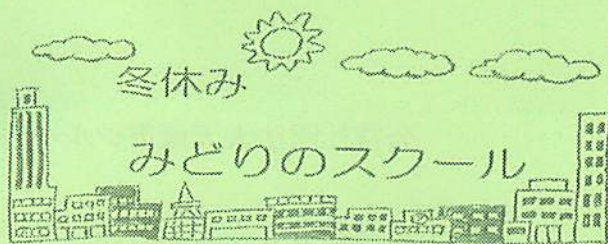 冬休み
みどりのスクール